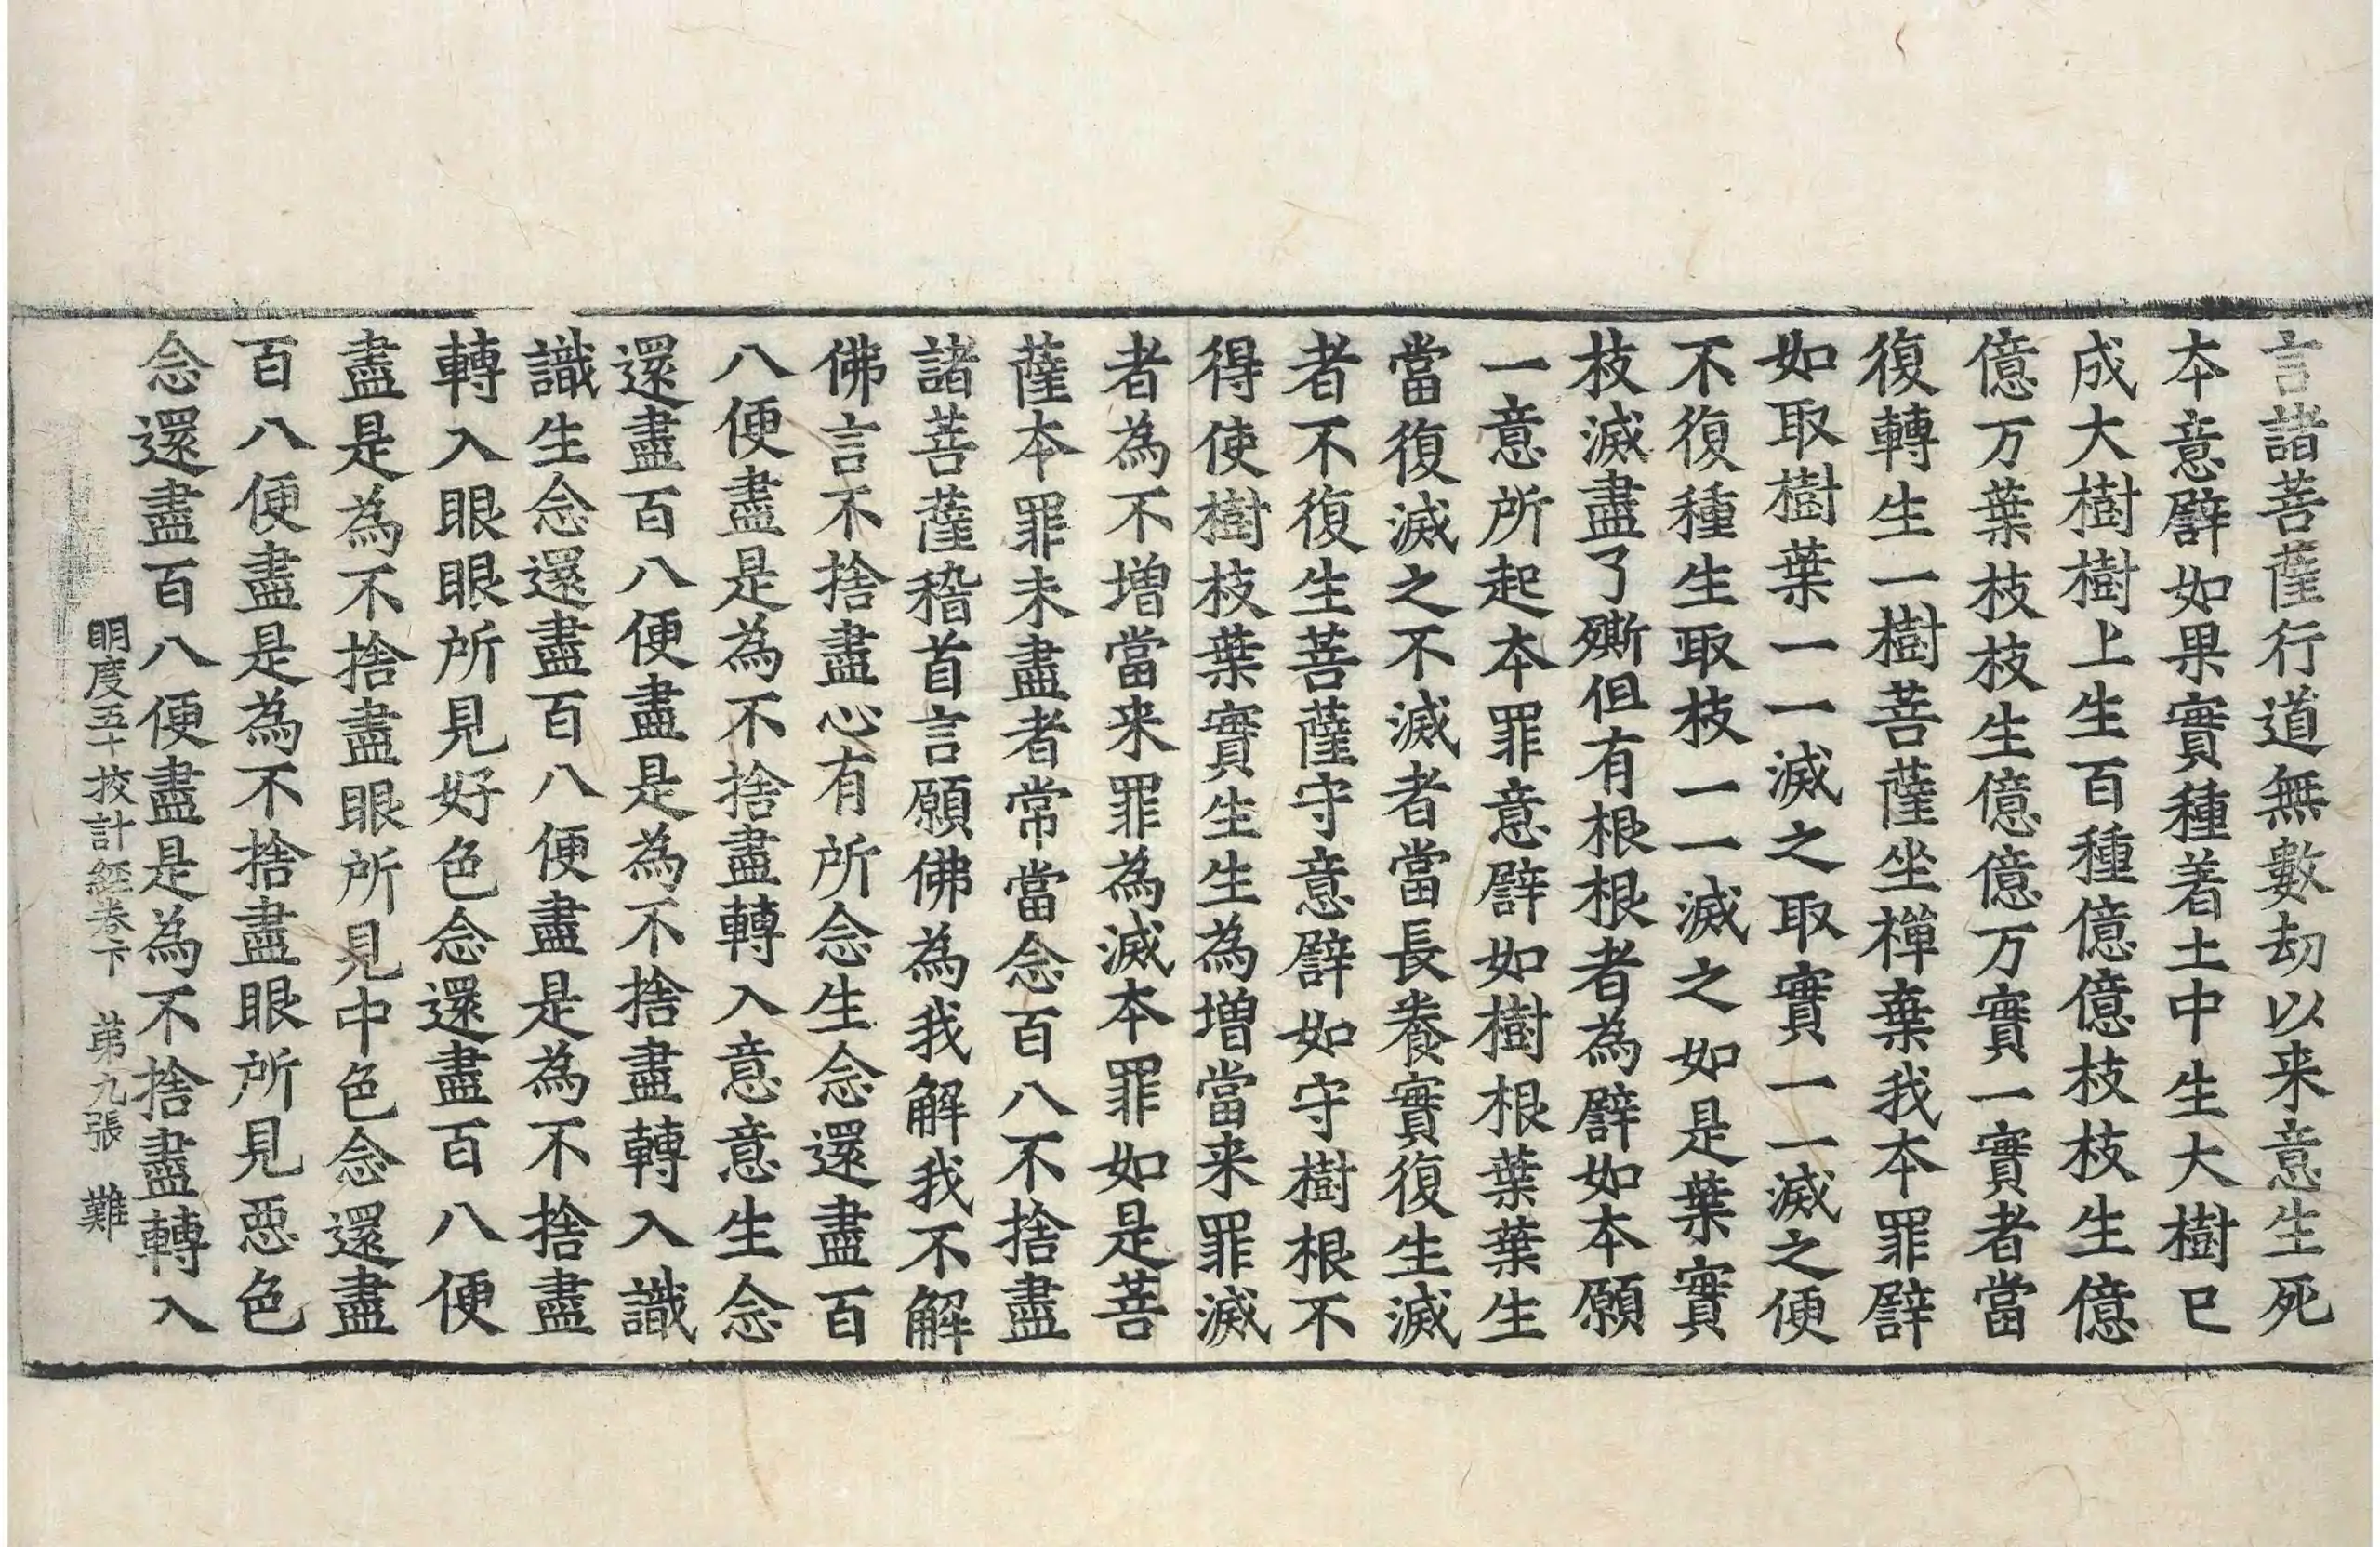 言諸菩薩行道無數劫以来意生死
本意譬如果實種着土中生大樹已
成大樹樹上生百種億億枝枝生億
億万葉枝枝生億億万實一實者當
復轉生一樹菩薩坐禪棄我本罪譬
如取樹葉一一滅之取實一一滅之便
不復種生取枝一一滅之如是葉實
枝滅盡了斯但有根根者為譬如本願
一意所起本罪意譬如樹根葉葉生
當復滅之不滅者當長養實復生滅
者不復生菩薩守意譬如守樹根不
得使樹枝葉實生生為增當来罪滅
者為不增當来罪為滅本罪如是菩
薩本罪未盡者常當念百八不捨盡
諸菩薩稽首言願佛為我解我不解
佛言不捨盡心有所念生念還盡百
八便盡是為不捨盡轉入意意生念
還盡百八便盡是為不捨盡轉入識
識生念還盡百八便盡是為不捨盡
轉入眼眼所見好色念還盡百八便
盡是為不捨盡眼所見中色念還盡
百八便盡是為不捨盡眼所見惡色
念還盡百八便盡是為不捨盡轉入
明度五十挍計經卷下 第九張 難